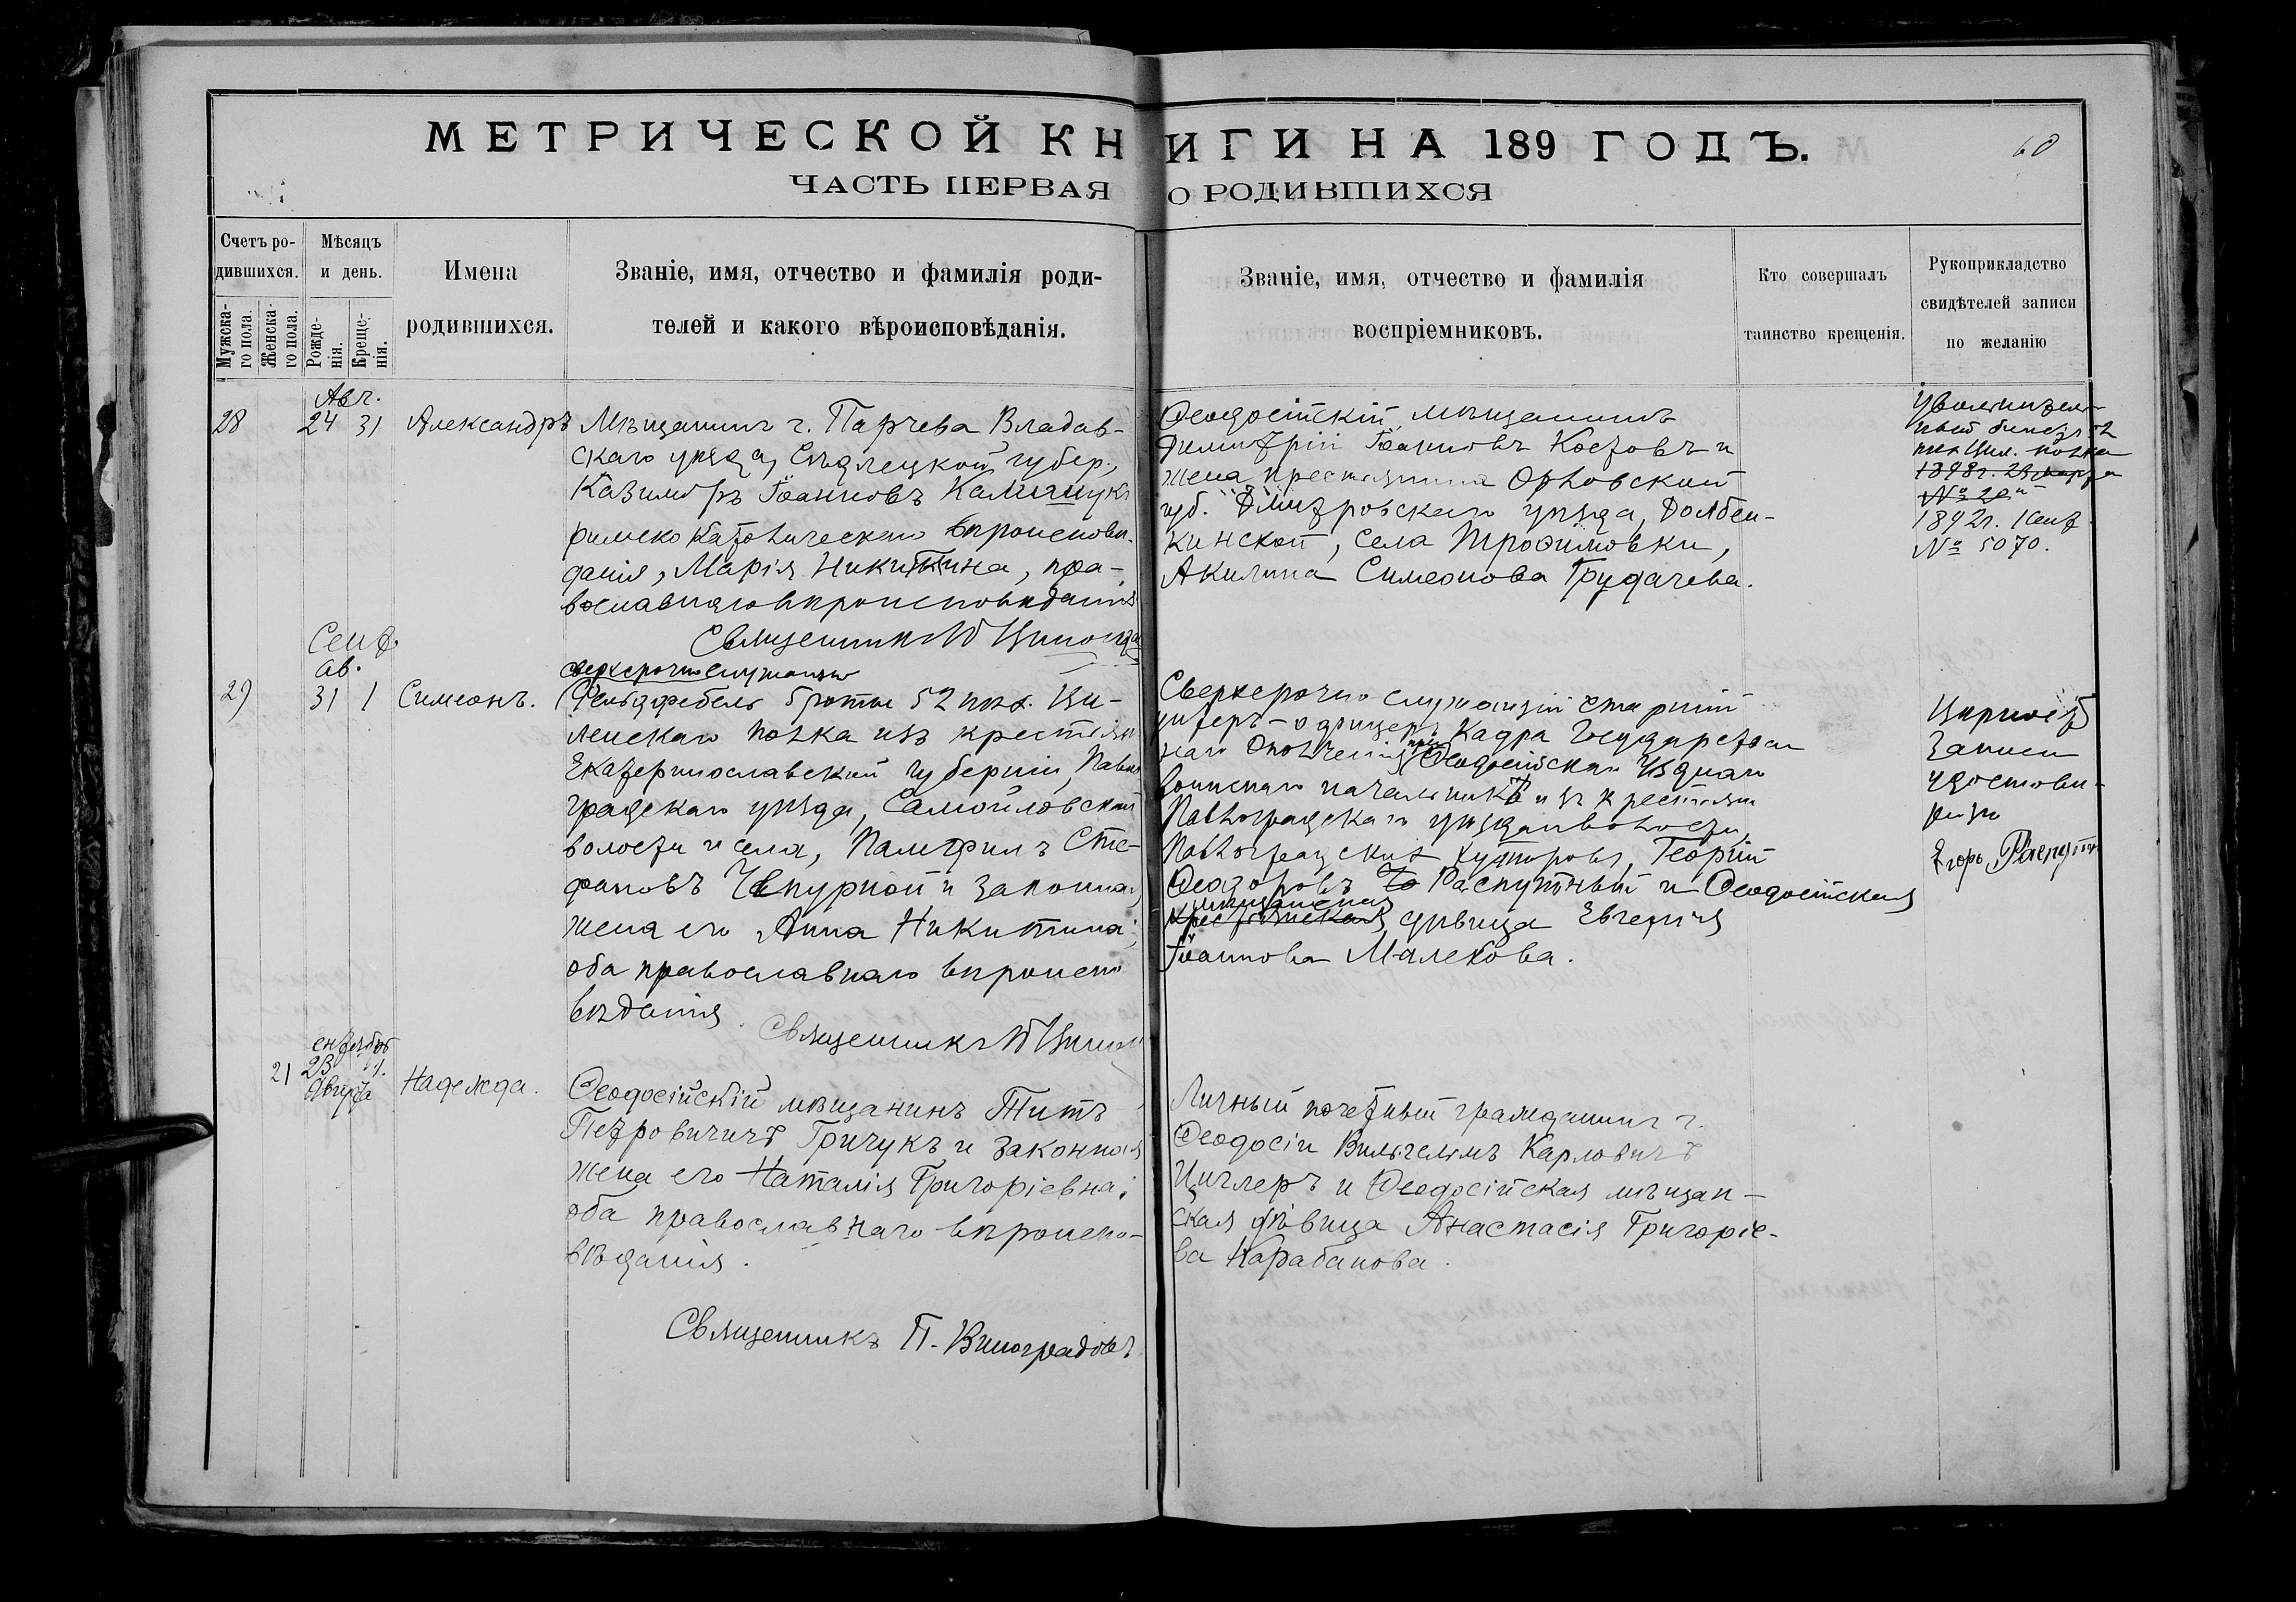 МЕТРИЧЕСКОЙ КНИГИ НА 189 ГОДЪ.
60
ЧАСТЬ ПЕРВАЯ О РОДИВШИХСЯ
Счетъ родившихся.
Мужскаго пола.
Женскаго пола.
Мѣсяцъ и день.
Рожденія.
Крещенія.
Имена
родившихся.
Званіе, имя, отчество и фамилія роди-
телей и какого вѣроисповѣданія.
Званіе, имя, отчество и фамилія
воспріемниковъ.
Кто совершалъ
таинство крещенія.
Рукоприкладство
свидѣтелей записи
по желанію
Авг.
28 24 31 Александръ
Мѣщанинъ г. Парчева Владав-
скаго уѣзда, Сѣдлецкой губер.,
Казимиръ Іоанновъ
римско католическаго вѣроисповѣ-
данія, Марія Никитина, пра-
вославнаго вѣроисповѣданія
Священникъ
Ѳеодосійскій мѣщанинъ
Димитрій Іоанновъ Котовъ и
жена крестьянина Орловской
губ. Дмитровскаго уѣзда, Долбен-
кинской, села Трофимовки,
Акилина Симеонова Грудачева.
Увольнитель-
ный билетъ 52
пѣх Вил. полка
1898 г. 23 марта
№ 20
1892 г. 1 Сент.
№ 5070.
Сент
ав.
29 31 1 Симеонъ.
сверхсрочнослужащій
Фельдфебель 5 роты 52 пѣх. Ви-
ленскаго полка изъ крестьянъ
Екатеринославской губерніи, Павло
градскаго уѣзда, Самойловской
волости и села, Памфилъ Сте-
фановъ Чепурной и законная
жена его Анна Никитина;
оба православнаго вѣроиспо
вѣданія.
Священникъ
Сверхсрочно служащій старшій
унтеръ-офицеръ Кадра Государствен
наго Ополченія при Ѳеодосійскомъ Уѣздномъ
Воинскаго начальника изъ крестьянъ
Павлоградскаго уѣзда и волости,
Павлоградскихъ хуторовъ, Георгій
Ѳеодоровъ Распутный и Ѳеодосійская
мѣщанская
крестьянская дѣвица Евгенія
Іоаннова Малекова.
Вѣрность
записи
удостовѣ-
ряю
Егоръ Распутн
сентября
21 23 1.
Августа
Надежда.
Ѳеодосійскій мѣщанинъ Титъ
Петровичъ Гричукъ и законная
жена его Наталія Григоріевна;
оба православнаго вѣроиспо-
вѣданія.
Священникъ П. Виноградовъ
Личный почетный гражданинъ г.
Ѳеодосіи Вильгельмъ Карловичъ
Циглеръ и Ѳеодосійская мѣщан-
ская дѣвица Анастасія Григоріе-
ва Карабанова.